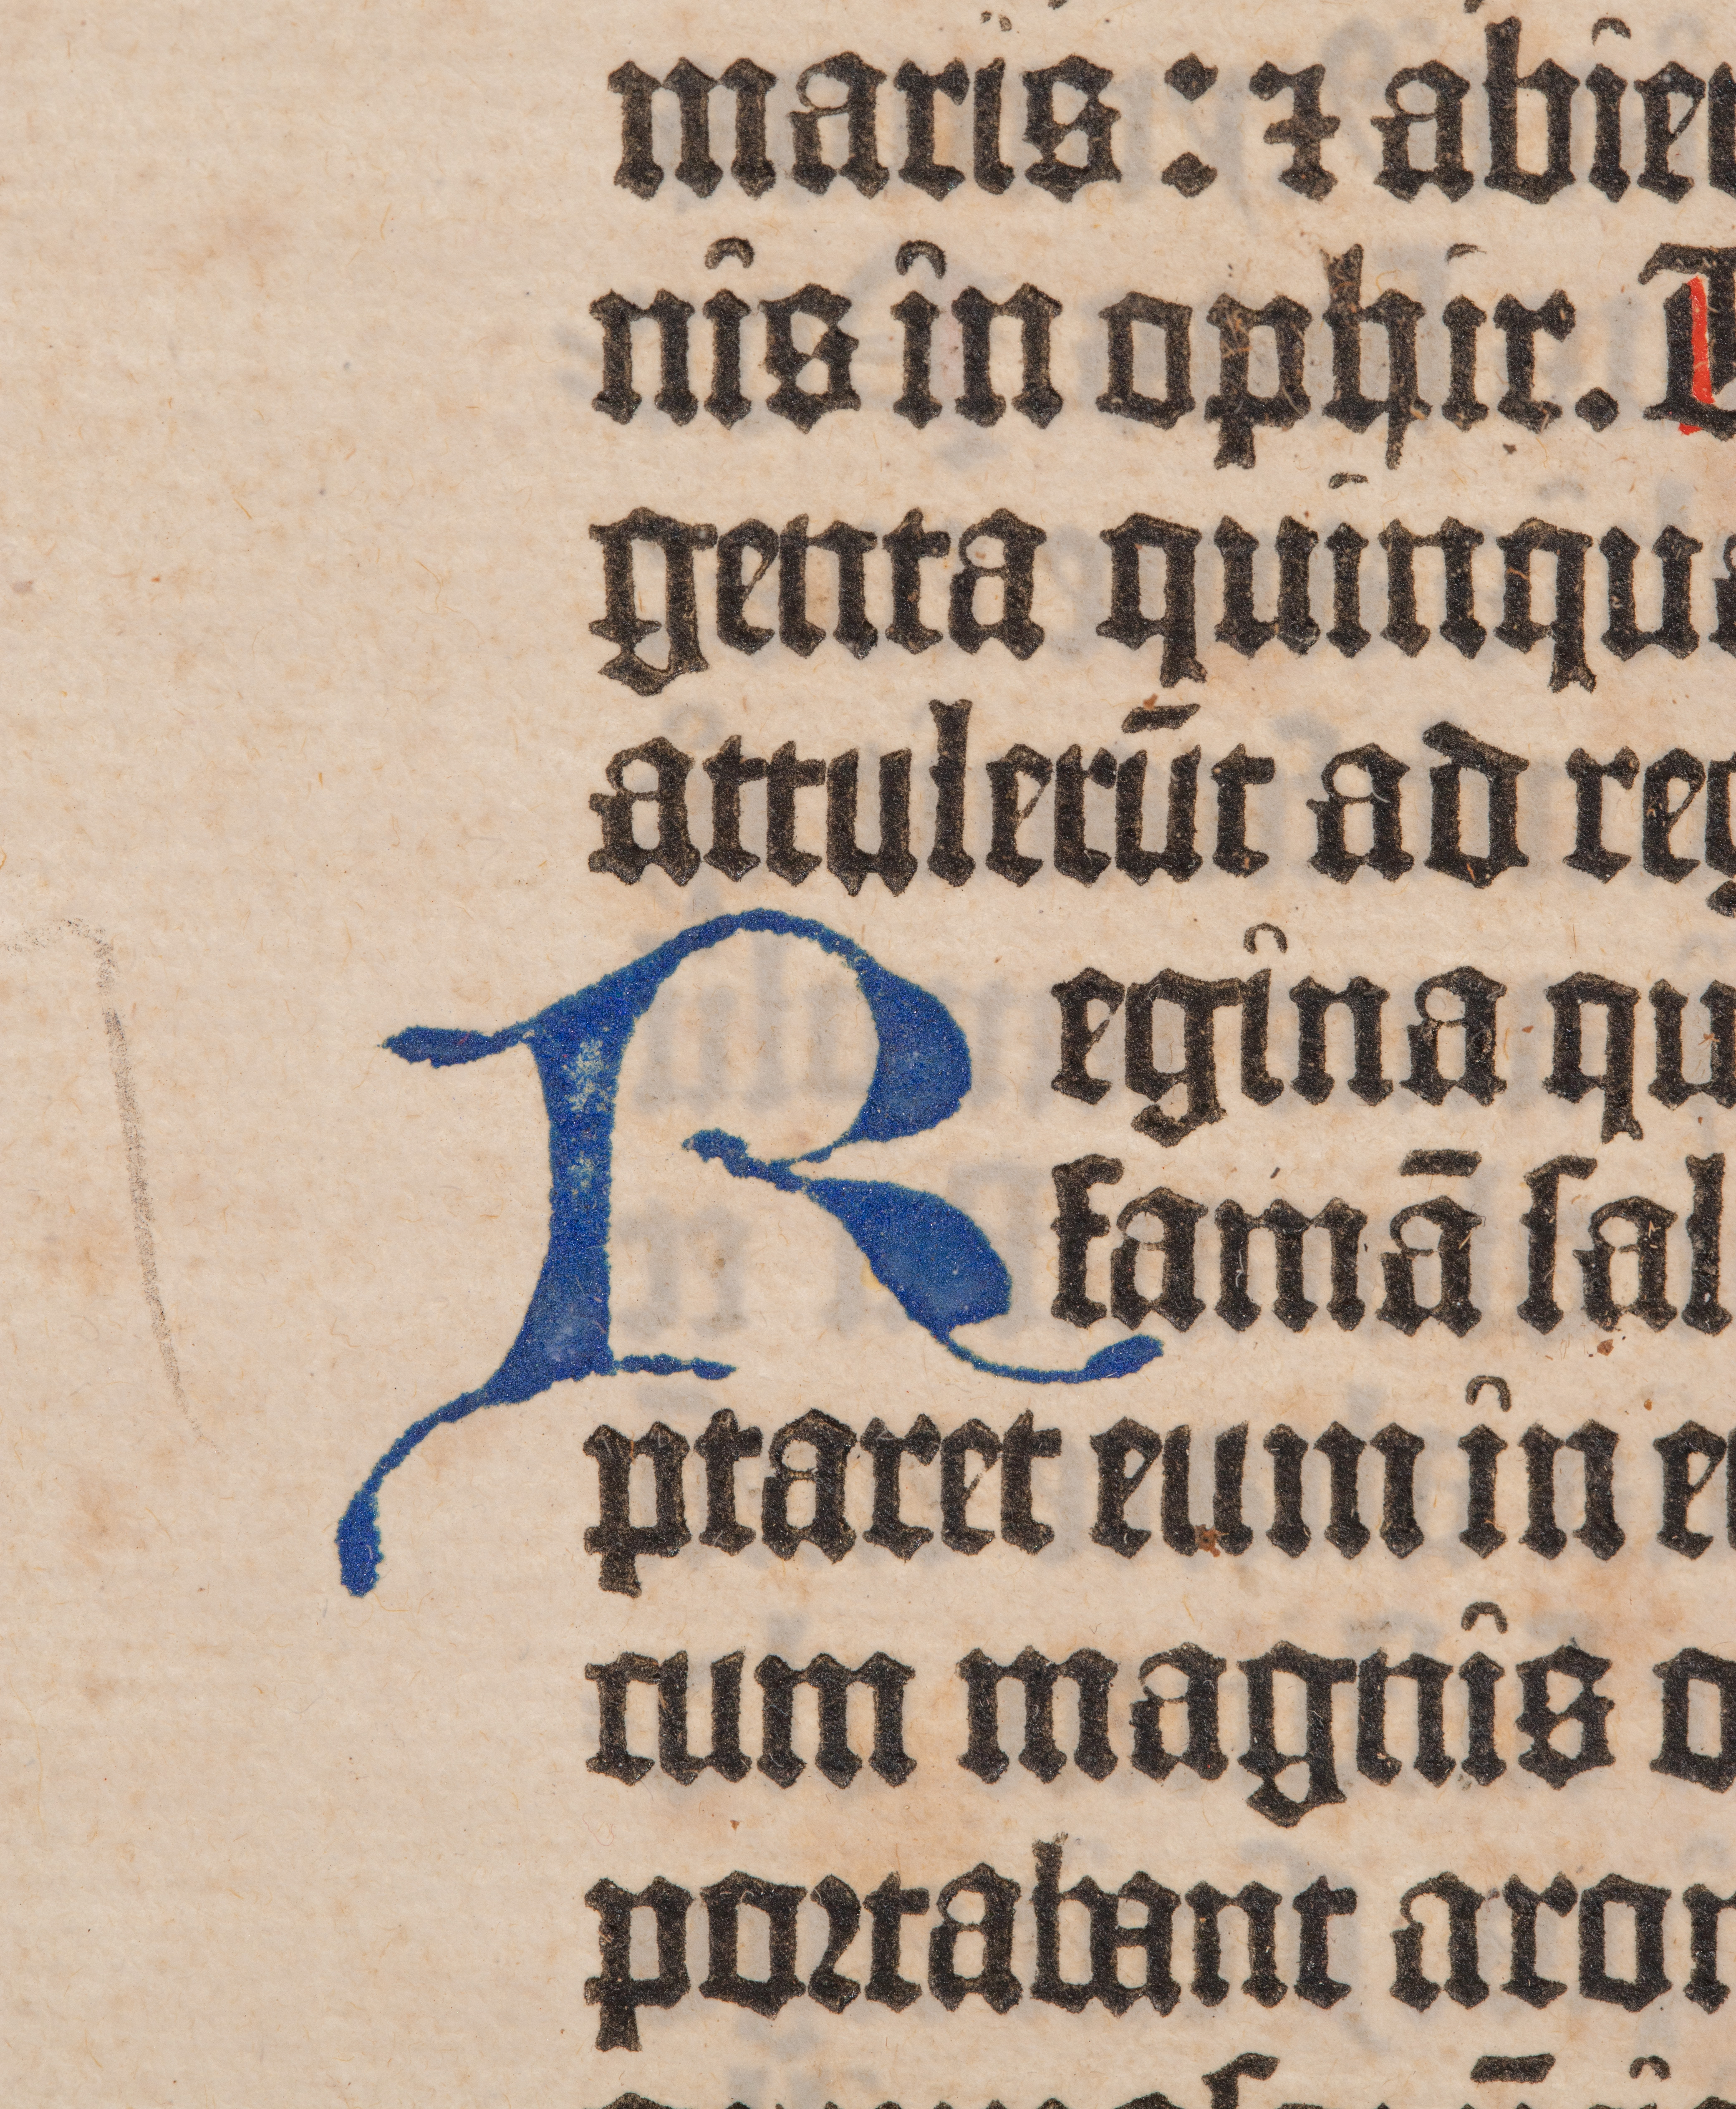 maris : ⁊ abie
nis in ophir.
genta quinqua
attulerūt ad reg
Regina qu
famā sal
ptaret eum in e
cum magnis o
portabant aro